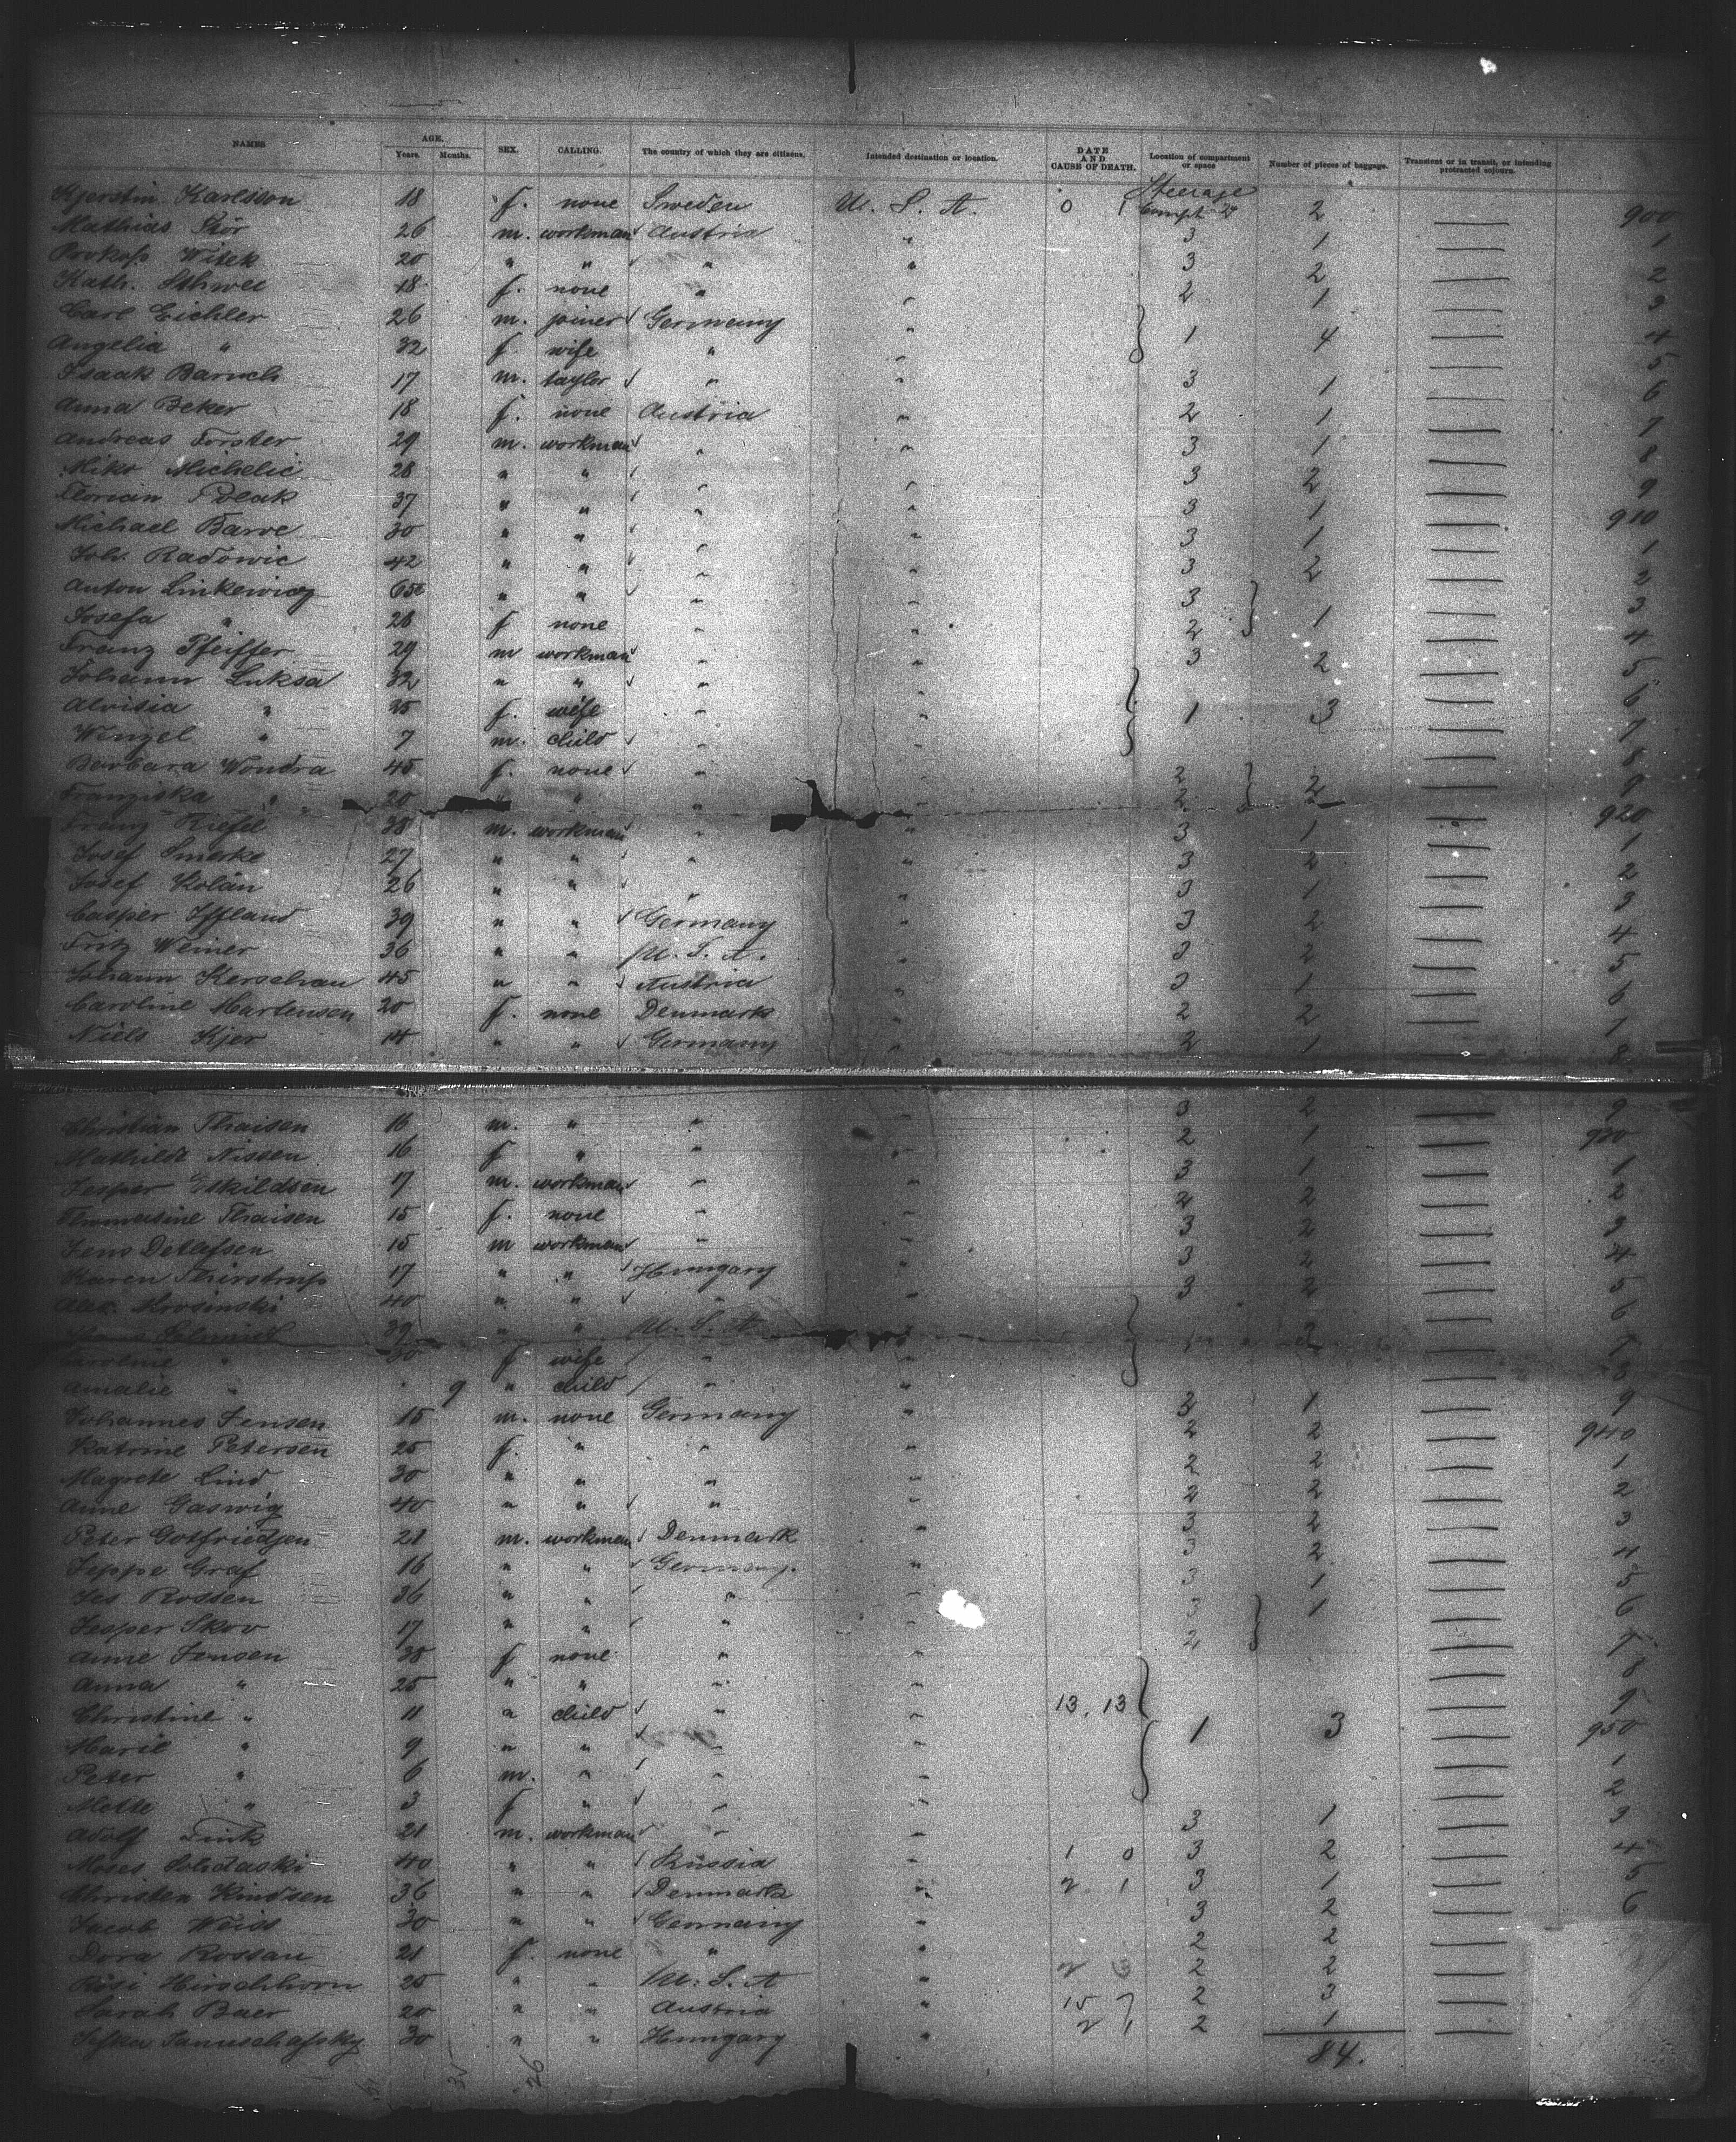 NAMES AGE. Years. Months. SEX. CALLING. The country of which they are citizens. Intended destination or location. DATE AND CAUSE OF DEATH. Location of compartment or space Number of pieces of baggage. Transient or in transit, or intending protracted sojourn.
Steerage
Kjerstin Karlsson 18 f. none Sweden U. S. A. 0 1 Compt 2 2 — 900
Mathias 26 m. workman Austria " 3 1 — 1
Prokop Witek 20 " " " " 3 2 — 2
Kath. 18 f. none " " 2 1 — 3
Carl Eichler 26 m. joiner Germany " 1 4 — 4
Angelia " 32 f. wife " " — 5
Isaak Baruch 17 m. taylor " " 3 1 — 6
Anna Beker 18 f. none Austria " 2 1 — 7
Andreas Forster 29 m. workman " " 3 1 — 8
Miko Michelic 28 " " " " 3 2 — 9
Florian Polak 37 " " " " 3 1 — 910
Michael Barve 30 " " " " 3 1 — 1
Joh. Radowic 42 " " " " 3 2 — 2
Anton Linkewicz " " " " 3 1 — 3
Josefa " 28 f none " " 2 — 4
Franz Pfeiffer 29 m workman " " 3 2 — 5
Johann Luksa 32 " " " " — 6
Aloisia " 25 f. wife " " 1 3 — 7
Wenzel " 7 m. child " " — 8
Barbara Wondra 45 f. none " " 2 2 — 9
Franziska " 20 " " " 2 — 920
Franz 38 m. workman " " 3 1 — 1
Josef Smerke 27 " " " " 3 2 — 2
Josef Kolán 26 " " " " 3 1 — 3
Casper Iffland 39 " " Germany " 3 2 — 4
Fritz Weiner 36 " " U. S. A. " 3 2 — 5
Johann Kerschau 45 " " Austria " 3 1 — 6
Caroline Martensen 20 f. none Denmark " 2 2 — 7
Niels Kjer 14 " " Germany " 2 1 8
Christian Thaisen 16 m. " " 3 2 — 9
Mathilde Nissen 16 f " " " 2 1 — 930
Jesper Eskildsen 17 m. workman " " 3 1 — 1
Thomasine Thaisen 15 f. none " " 2 2 — 2
Jens Detlefsen 15 m workman " " 3 2 — 3
Karen Thirstrup 17 " " Hungary " 3 2 — 4
Alex. Krosinski 40 " " " 3 2 — 5
39 " " U. S. A. " — 6
Caroline " 30 f wife " " 1 3 — 7
Amalie " 9 " child " " — 8
Johannes Jensen 15 m. none Germany " 3 1 — 9
Katrine Petersen 25 f. " " " 2 2 — 940
Magrete Lind 30 " " " " 2 2 — 1
Anne Gaswig 40 " " " " 2 2 — 2
Peter Gotfriedsen 21 m. workman Denmark " 3 2 — 3
Jeppe Graf 16 " " Germany. " 3 2 — 4
Jes Rossen 36 " " " 3 1 — 5
Jesper Skov 17 " " " " 3 1 — 6
Anne Jensen 38 f none " " 2 — 7
Anna " 25 " " " " — 8
Christine " 11 " child " " 13, 13 — 9
Marie " 9 " " " " 1 3 — 950
Peter " 6 m. " " " — 1
Mette " 3 f " " " — 2
Adolf Fink 21 m. workman " " 3 1 — 3
Moses 40 " " Russia " 1 0 3 2 — 4
Christen Knudsen 36 " " Denmark " 2 1 3 1 — 5
Jacob Weiss 30 " " Germany " 3 2 — 6
Dora Rossau 21 f. none " " 2 2 —
Rosi Hirschhorn 25 " " U. S. A " 2 2 —
Sarah Baer 20 " " Austria " 15 7 2 3 —
30 " " Hungary " 2 1 2 1 —
26 84.